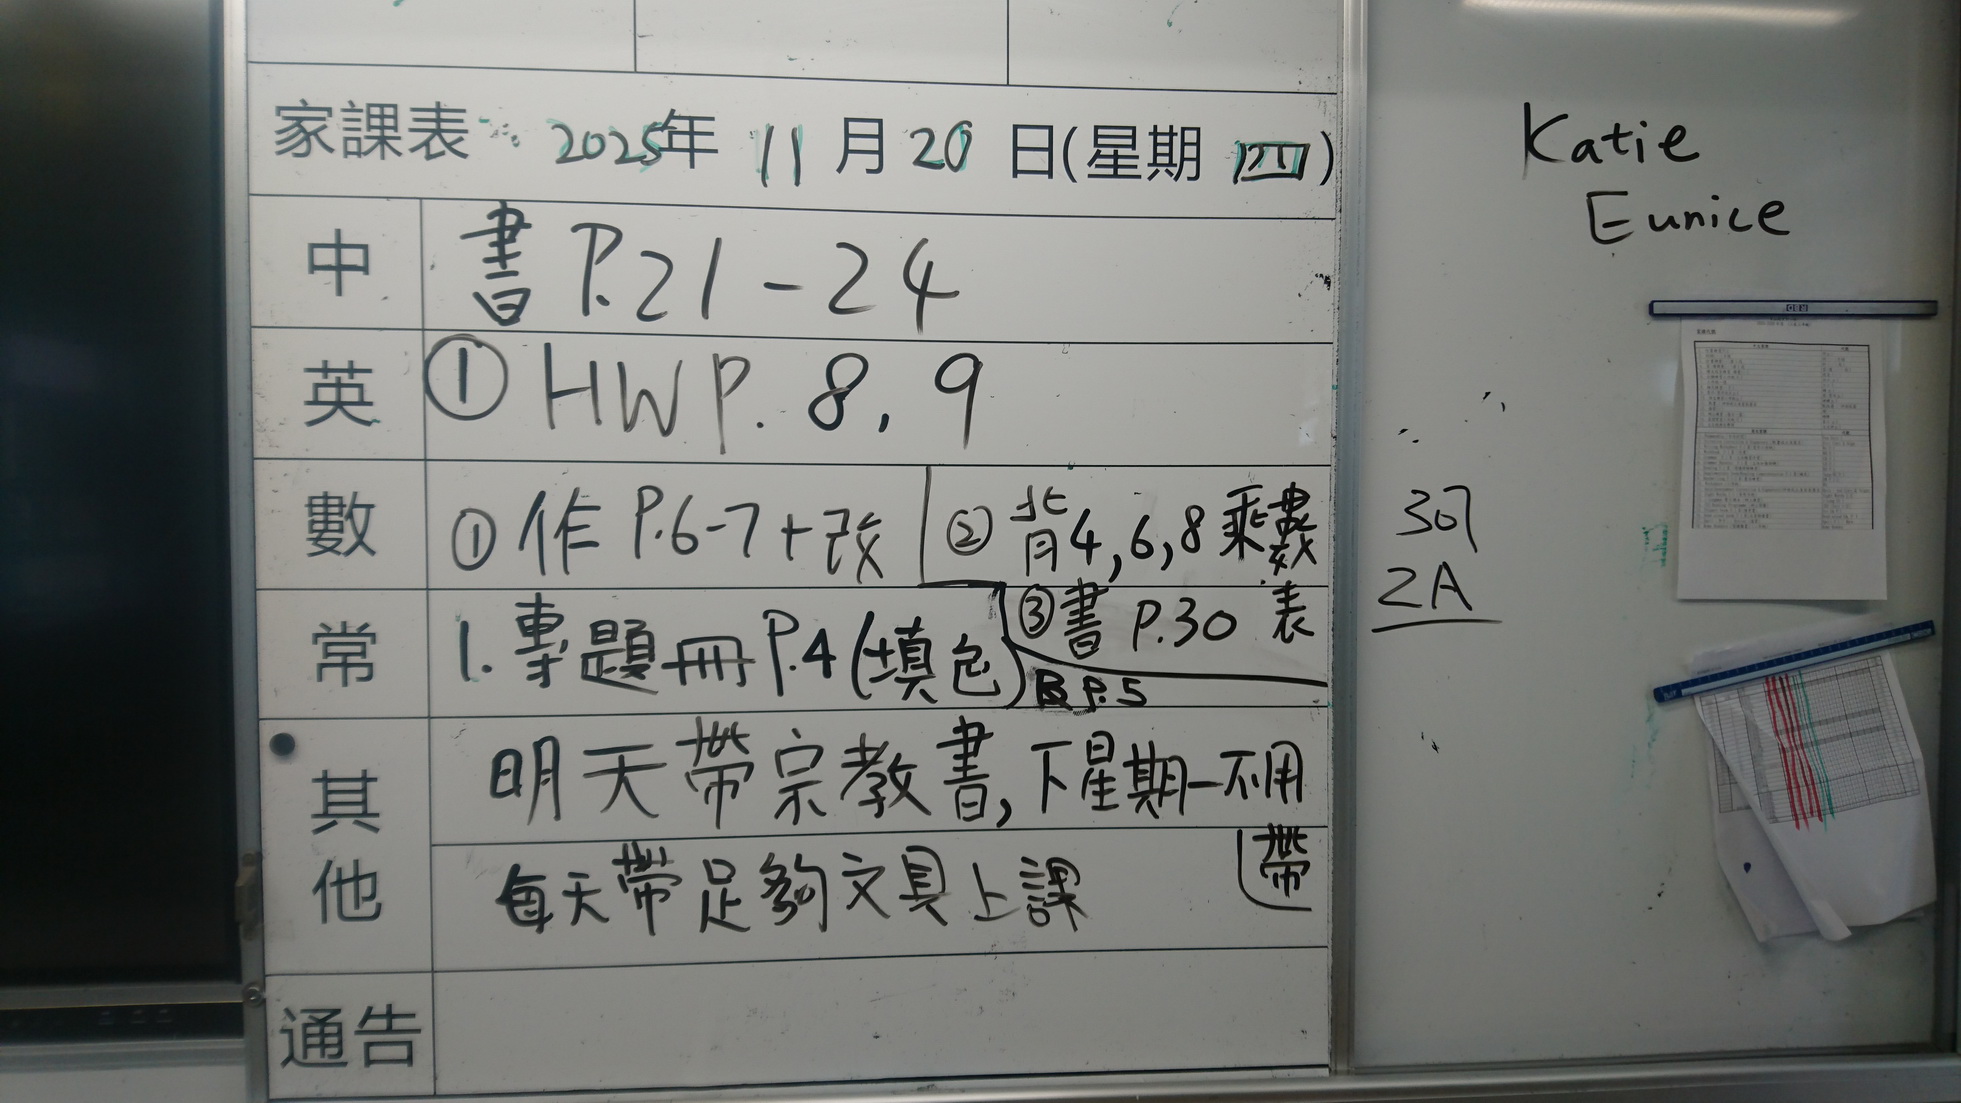 家課表 2025年 11月20日(星期四)
中 書 P.21-24
英 ① HW P. 8, 9
數 ① 作 P.6-7+改 ② 背4,6,8乘數表
③書 P.30
常 1. 專題冊 P.4 (填色) B P.5
其他 明天帶宗教書,下星期一不用帶
每天帶足夠文具上課
通告
Katie
Eunice
307
2A